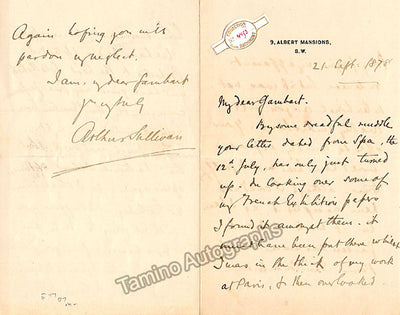 Again hoping you will
pardon my neglect.
I am, my dear Gambart
yrs truly
Arthur Sullivan
9, ALBERT MANSIONS,
S.W.
21 Sept. 1878
My dear Gambart.
By some dreadful muddle
your letter dated from Spa, the
12th July, has only just turned
up. In looking over some of
my French Exhibition papers
I found it amongst them. it
must have been put there whilst
I was in the thick of my work
at Paris, & then overlooked.
Tamino Autographs